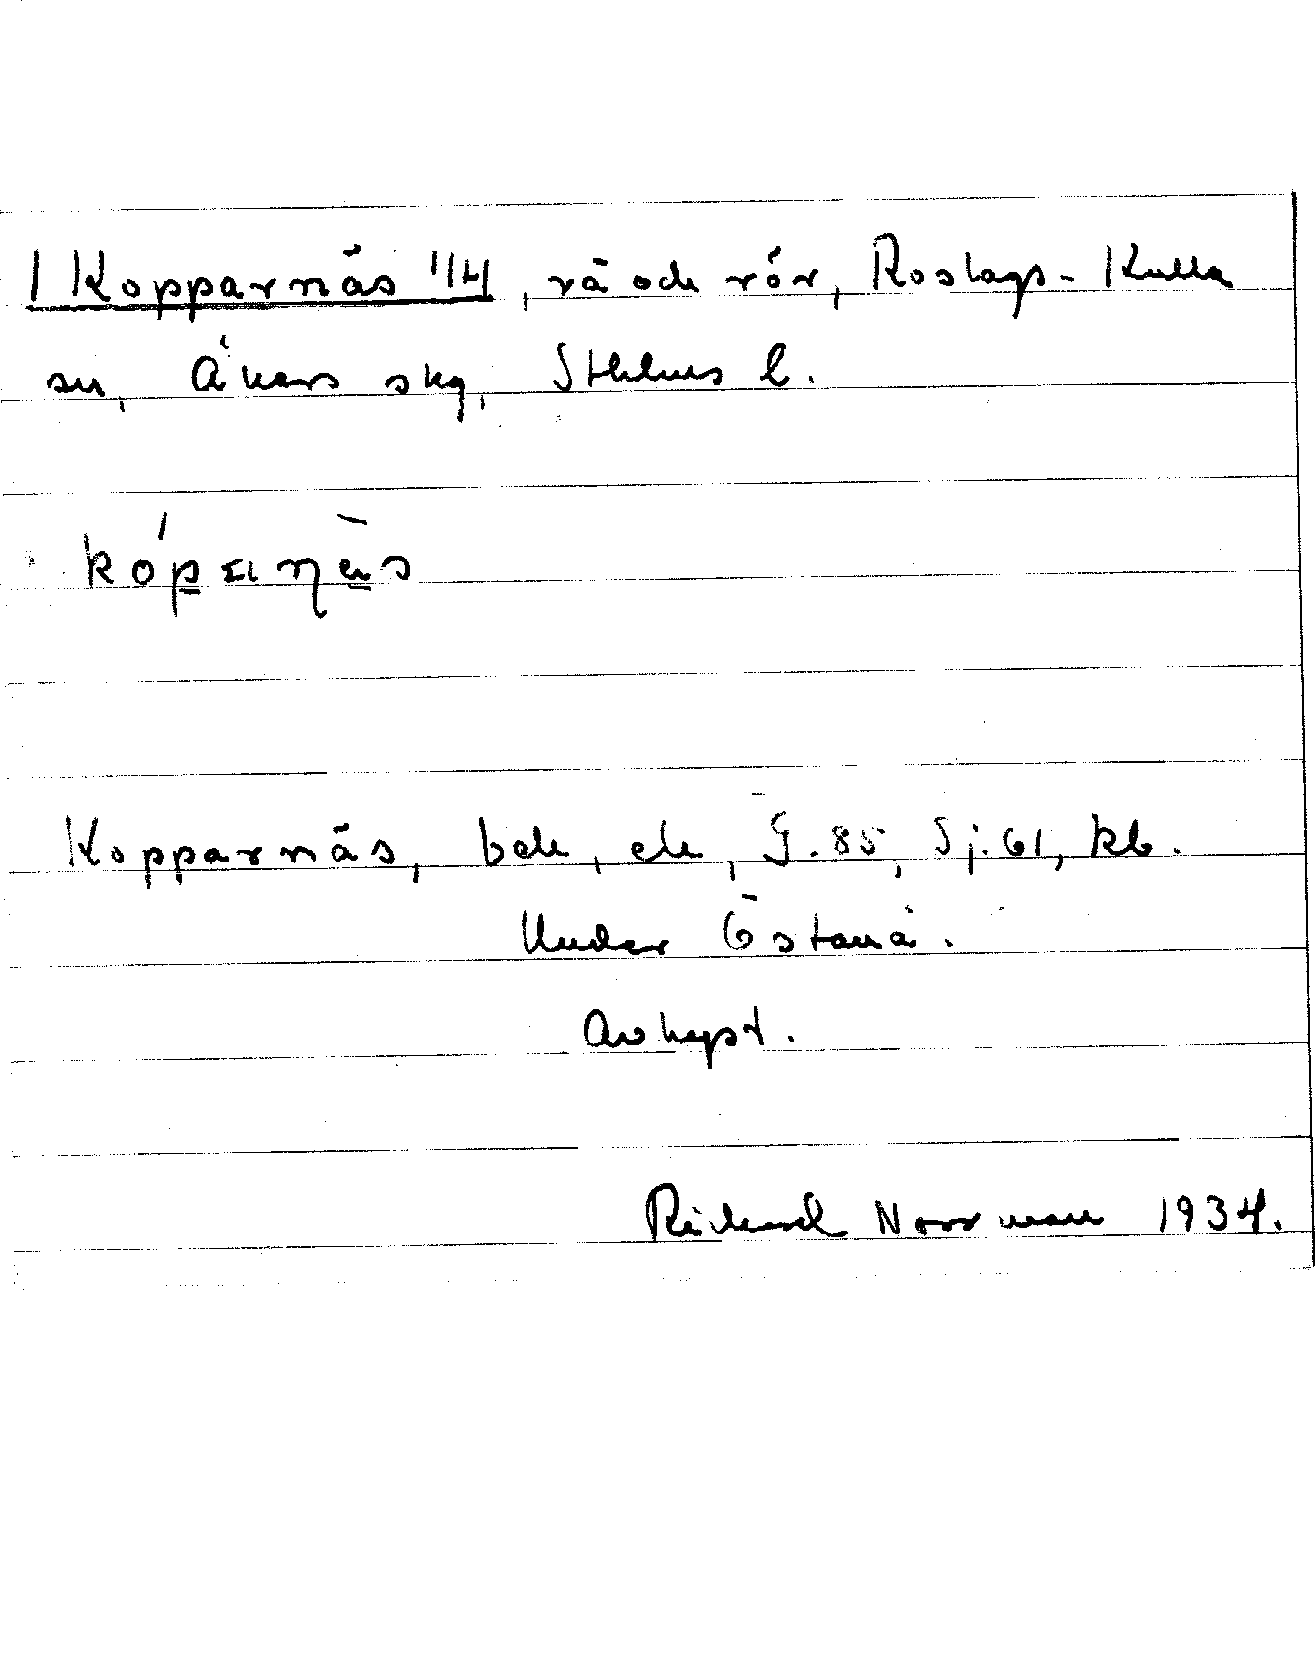 1 Kopparnäs 1/4, rå och rör, Roslags-Kulla
sn, Åkers skg, Sthlms l.
Kopparnäs, beb, ek, G.85, Sj.61, kb.
Under Östanå.
Avhyst.
Richard Norrman 1934.